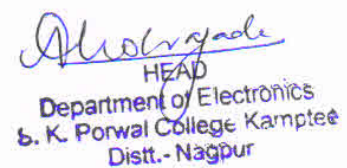 HEAD
Department of Electronics
S. K. Porwal College Kamptee
Distt.- Nagpur